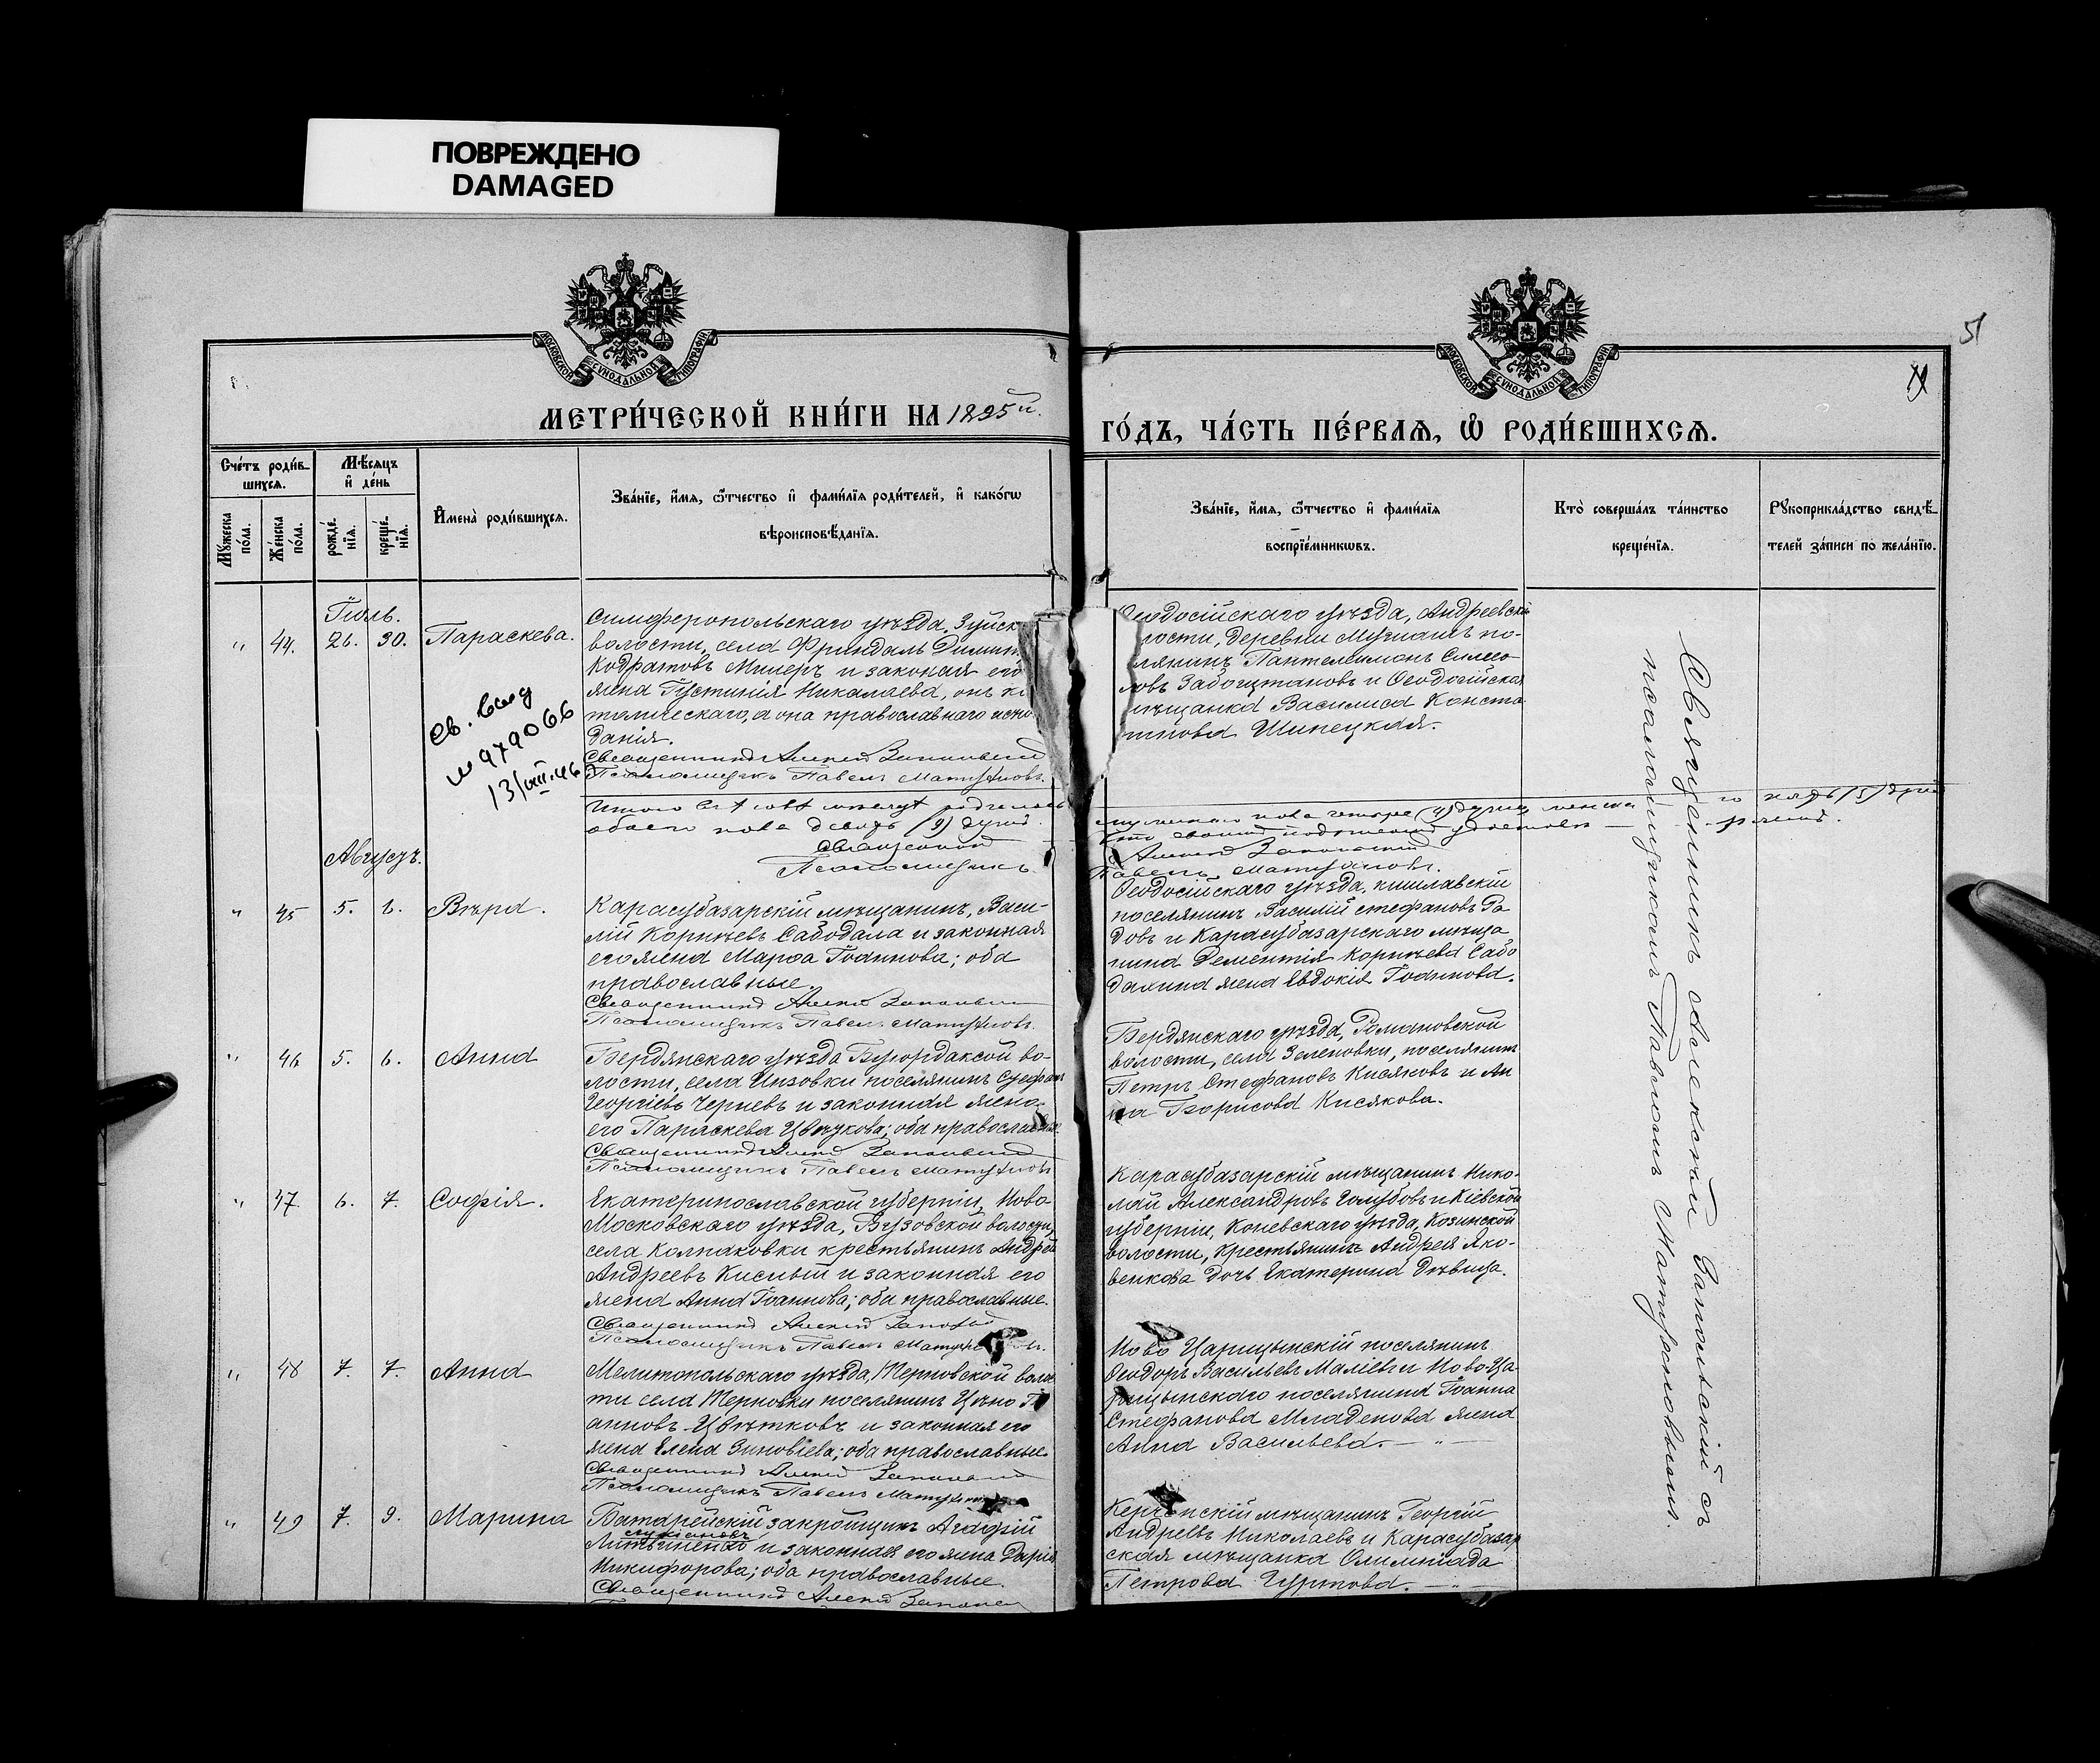 ПОВРЕЖДЕНО
DAMAGED
МОСКОВСКОЙ СѴНОДАЛЬНОЙ ТИПОГРАФІИ
МОСКОВСКОЙ СѴНОДАЛЬНОЙ ТИПОГРАФІИ
51
МЕТРИ́ЧЕСКОЙ КНИ́ГИ НА 1895й.
ГО́ДЪ, ЧА́СТЬ ПЕ́РВАѦ, Ѡ РОДИ́ВШИХСѦ.
Сче́тъ роди́в-
шихсѧ.
Мꙋжеска по́ла.
Же́нска по́ла.
Мѣ́сѧцъ
и҆ де́нь
рожде́нїѧ.
креще́нїѧ.
И҆мена̀ роди́вшихсѧ.
Зва́нїе, и҆́мѧ, ѻ҆́тчество и҆ фами́лїѧ роди́телей, и҆ како́гѡ
вѣроисповѣ́данїѧ.
Зва́нїе, и҆́мѧ, ѻ҆́тчество и҆ фами́лїѧ
воспрїе́мникѡвъ.
Кто̀ соверша́лъ та́инство
креще́нїѧ.
Рꙋкоприкла́дство свидѣ́-
телей за́писи по жела́нїю.
Іюль.
" 44. 26. 30. Параскева.
Симферопольскаго уѣзда, Зуйск
волости, села Фриндаль Димит
Кодратовъ Милеръ и законая его
жена Іустинія Николаева, онъ ка
толическаго, а она православнаго испо
данія.
Священникъ Алексій Запольскій
Псаломщикъ Павелъ Матусловъ.
Ѳеодосійскаго уѣзда, Андреевск
лости, деревни по-
лянинъ Пантелеимонъ
и Ѳеодосійская
мѣщанка Василиса Конста
тинова Шипецкая.
Св. выд
№ 979066
13/VIII.46
обоего пола девять (9) душъ.
Священникъ
Псаломщикъ
мужескаго пола четыре (4) души, женска го пять (5) душъ
Алексій Запольскій
Павелъ Матусловъ.
Августъ.
" 45 5. 6. Вѣра.
Карасубазарскій мѣщанинъ, Васи-
лій Корнѣевъ Сабодала и законная
его жена Марѳа Іоаннова; оба
православные.
Священникъ Алексій Запольскій
Псаломщикъ Павелъ Матусловъ.
Ѳеодосійскаго уѣзда, кишлавскій
поселянинъ Василій Стефановъ Ра
довъ и Карасубазарскаго мѣща
нина Дементія Корнѣева Сабо
далина жена Евдокія Іоаннова.
" 46 5. 6. Анна
Бердянскаго уѣзда во-
лости, села Инзовки поселянинъ Стефанъ
Георгіевъ Черневъ и законная жена
его Параскева Цвѣткова; оба православные.
Священникъ Алексій Запольскій
Псаломщикъ Павелъ Матусловъ
Бердянскаго уѣзда, Романовской
волости, села Зеленовки, поселянинъ
Петръ Стефановъ Кисяковъ и Ан
на Борисова Кисякова.
" 47 6. 7. Софія.
Екатеринославской губерніи, Ново
Московскаго уѣзда, Вузовской волости,
села Колпаковки крестьянинъ Андрей
Андреевъ Кислый и законная его
жена Анна Іоаннова; оба православные.
Священникъ Алексій Запольскій
Псаломщикъ Павелъ
Карасубазарскій мѣщанинъ Нико-
лай Александровъ Голубовъ и Кіевской
губерніи, Каневскаго уѣзда, Козинской
волости, крестьянина Андрея Яко-
венкова дочь Екатерина дѣвица.
" 48 7. 7. Анна
Мелитопольскаго уѣзда, Терновской волос
ти села Терновки поселянинъ Цѣно Іо
анновъ Цвѣтковъ и законная его
жена Елена Зиновіева; оба православные.
Священникъ Алексій Запольскій
Псаломщикъ Павелъ
Ново Царицынскій поселянинъ
Ѳеодоръ Васильевъ Маліевъ и Ново-Ца-
рицынскаго поселянина Іоанна
Стефанова Младенова жена
Анна Васильева. — " —
" 49 7. 9. Марина
Батарейскій закройщикъ Агафій
Литвиненко и законная его жена Дарія
Никифорова; оба православные.
Священникъ Алексій
Керченскій мѣщанинъ Георгій
Андреевъ Николаевъ и Карасубазар
ская мѣщанка Олимпіада
Петрова Гуртова. — " —
Священникъ Алексій Запольскій съ
псаломщикомъ Павломъ Матусловымъ.